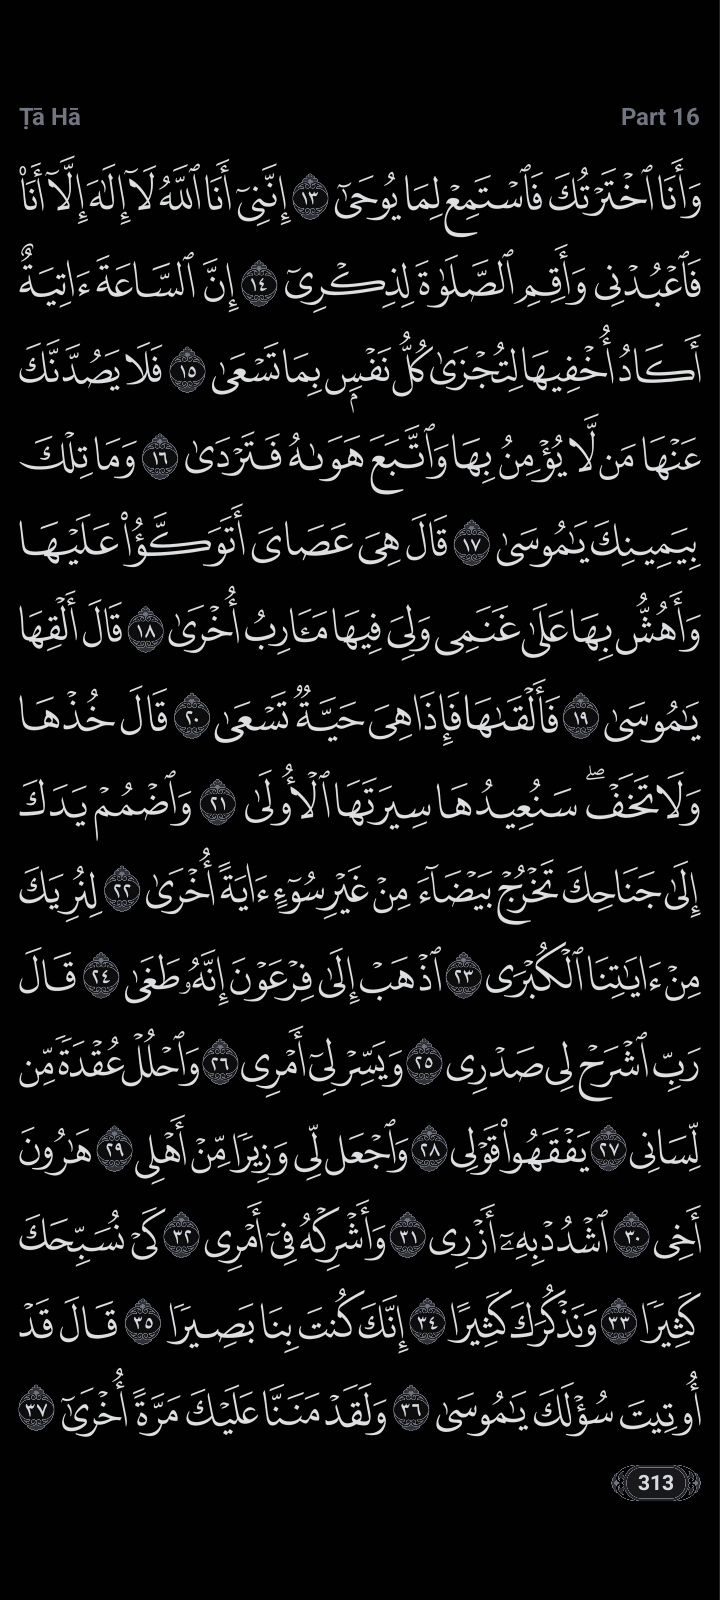 Ṭā Hā
Part 16
وَأَنَا ٱخْتَرْتُكَ فَٱسْتَمِعْ لِمَا يُوحَىٰٓ ١٣ إِنَّنِىٓ أَنَا ٱللَّهُ لَآ إِلَٰهَ إِلَّآ أَنَا۠
فَٱعْبُدْنِى وَأَقِمِ ٱلصَّلَوٰةَ لِذِكْرِىٓ ١٤ إِنَّ ٱلسَّاعَةَ ءَاتِيَةٌ
أَكَادُ أُخْفِيهَا لِتُجْزَىٰ كُلُّ نَفْسٍۭ بِمَا تَسْعَىٰ ١٥ فَلَا يَصُدَّنَّكَ
عَنْهَا مَن لَّا يُؤْمِنُ بِهَا وَٱتَّبَعَ هَوَىٰهُ فَتَرْدَىٰ ١٦ وَمَا تِلْكَ
بِيَمِينِكَ يَٰمُوسَىٰ ١٧ قَالَ هِىَ عَصَاىَ أَتَوَكَّؤُا۟ عَلَيْهَا
وَأَهُشُّ بِهَا عَلَىٰ غَنَمِى وَلِىَ فِيهَا مَـَٔارِبُ أُخْرَىٰ ١٨ قَالَ أَلْقِهَا
يَٰمُوسَىٰ ١٩ فَأَلْقَىٰهَا فَإِذَا هِىَ حَيَّةٌ تَسْعَىٰ ٢٠ قَالَ خُذْهَا
وَلَا تَخَفْ ۖ سَنُعِيدُهَا سِيرَتَهَا ٱلْأُولَىٰ ٢١ وَٱضْمُمْ يَدَكَ
إِلَىٰ جَنَاحِكَ تَخْرُجْ بَيْضَآءَ مِنْ غَيْرِ سُوٓءٍ ءَايَةً أُخْرَىٰ ٢٢ لِنُرِيَكَ
مِنْ ءَايَٰتِنَا ٱلْكُبْرَى ٢٣ ٱذْهَبْ إِلَىٰ فِرْعَوْنَ إِنَّهُۥ طَغَىٰ ٢٤ قَالَ
رَبِّ ٱشْرَحْ لِى صَدْرِى ٢٥ وَيَسِّرْ لِىٓ أَمْرِى ٢٦ وَٱحْلُلْ عُقْدَةً مِّن
لِّسَانِى ٢٧ يَفْقَهُوا۟ قَوْلِى ٢٨ وَٱجْعَل لِّى وَزِيرًا مِّنْ أَهْلِى ٢٩ هَٰرُونَ
أَخِى ٣٠ ٱشْدُدْ بِهِۦٓ أَزْرِى ٣١ وَأَشْرِكْهُ فِىٓ أَمْرِى ٣٢ كَىْ نُسَبِّحَكَ
كَثِيرًا ٣٣ وَنَذْكُرَكَ كَثِيرًا ٣٤ إِنَّكَ كُنتَ بِنَا بَصِيرًا ٣٥ قَالَ قَدْ
أُوتِيتَ سُؤْلَكَ يَٰمُوسَىٰ ٣٦ وَلَقَدْ مَنَنَّا عَلَيْكَ مَرَّةً أُخْرَىٰٓ ٣٧
313